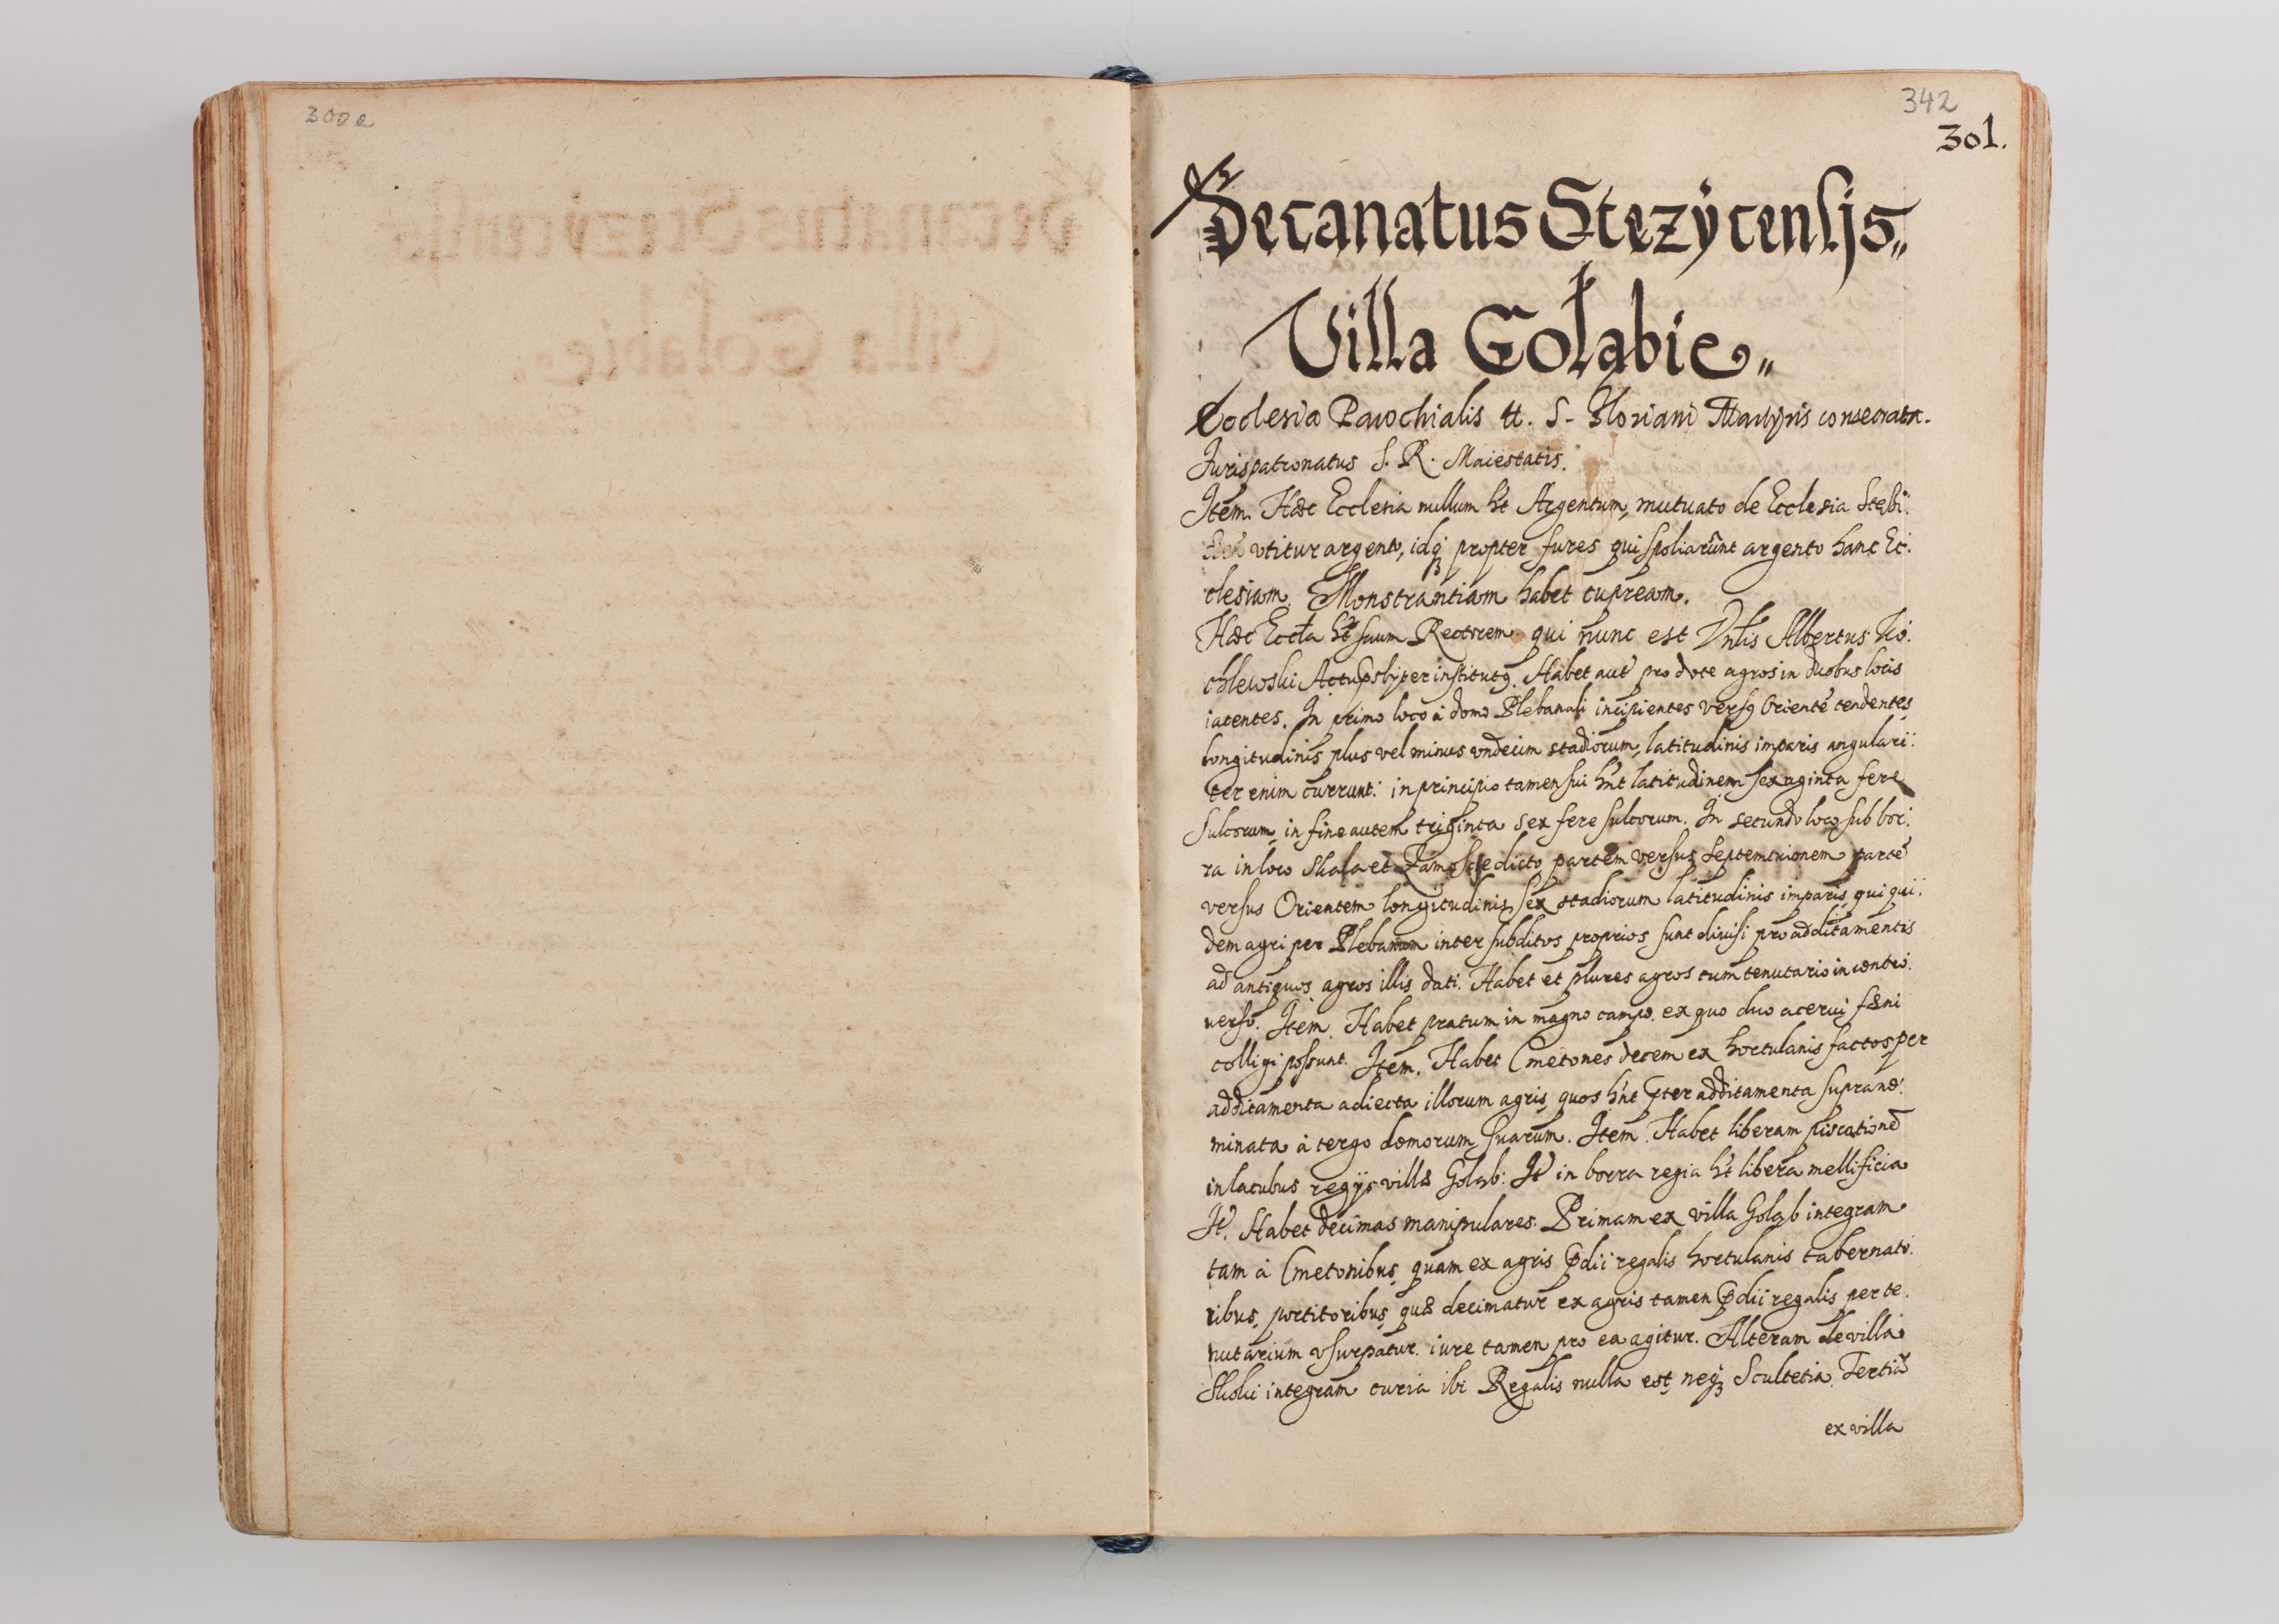 300e
342
301.
Decanatus Stezÿcensis„
Villa Gołabie„
Ecclesia Parochialis tt. S. Floriani Martyris consecrata.
Jurispatronatus S. R. Maiestatis.
Jtem. Hæc Ecclesia nullum ht Argentum, mutuato de Ecclesia
vtitur argento, idq3 propter fures qui spoliarunt argento hanc Ec:
clesiam. Monstrantiam habet cupream.
Hæc Eccła ht suum Rectorem qui nunc est Albertus Ko:
chlewski institutq. Habet aut pro dote agros in duobus locis
iacentes. Jn primo loco à domo Plebanali incipientes versq Oriente tendentes
longitudinis plus vel minus vndecim stadiorum, latitudinis imparis angulari:
ter enim currunt: in principio tamen sui hnt latitudinem sexaginta fere
sulcorum, in fine autem triginta sex fere sulcorum. Jn secundo loco sub bor:
ra in loco Skała et dicto partem versus Septemtrionem parte
versus Orientem longitudinis sex stadiorum latitudinis imparis qui qui:
dem agri per Plebanum inter subditos proprios sunt diuisi pro additamentis
ad antiquos agros illis dati. Habet et plures agros cum tenutario in contro:
uerso. Jtem. Habet pratum in magno campo ex quo duo acerui fæni
colligi possunt. Jtem. Habet Cmetones decem ex hortulanis factos per
additamenta adiecta illorum agris, quos hnt pter additamenta supran̄o:
minata à tergo domorum suarum. Jtem. Habet liberam piscatione
in lacubus regijs villæ Goląb: Jt in borra regia ht libera mellificia
Jt. Habet decimas manipulares. Primam ex villa Goląb integram
tam à Cmetonibus, quam ex agris pdii regalis hortulanis tabernato:
ribus, portitoribus, quæ decimatur ex agris tamen pdii regalis per te:
nutarium vsurpatur. iure tamen pro ea agitur. Alteram de villa
Skoki integram curia ibi Regalis nulla est neq3 Scultetia. Tertia
ex villa